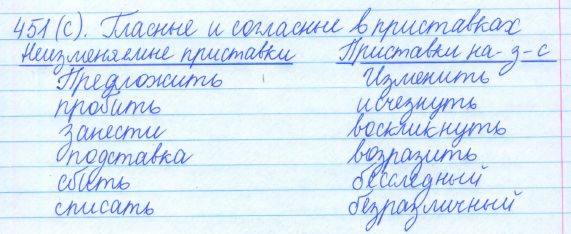 451 (с). Гласные и согласные в приставках
Неизменяемые приставки Приставки на -з-с
Предложить Изменить
пробить исчезнуть
занести воскликнуть
подставка возразить
сбить бесследный
списать безразличный